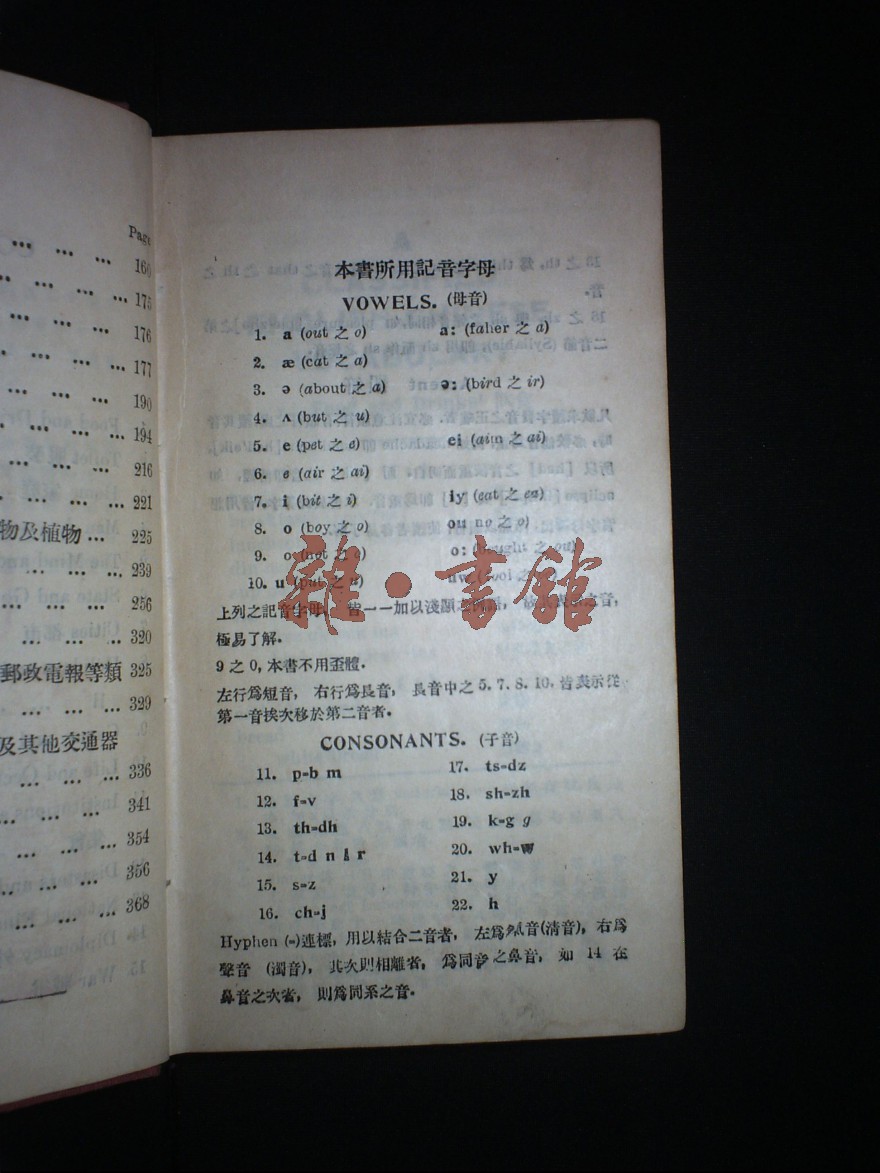 Page
160
175
176
177
190
194
216
221
物及植物 ... 225
239
256
320
郵政電報等類 325
329
及其他交通器
336
341
354
356
368
本書所用記音字母
VOWELS. (母音)
1. a (out 之 o) a: (faher 之 a)
2. æ (cat 之 a)
3. ə (about 之 a) ə: (bird 之 ir)
4. ʌ (but 之 u)
5. e (pet 之 e) ei (aim 之 ai)
6. (air 之 ai)
7. i (bit 之 i) iy (eat 之 ea)
8. o (boy 之 o) ou no 之 o)
9. o (not 之 o) o: (bought 之 ou)
10. u (put 之 u) uw
上列之記音字母, 皆一一加以淺顯之
極易了解.
9 之 0, 本書不用歪體.
左行爲短音, 右行爲長音, 長音中之 5. 7. 8. 10. 皆表示從
第一音挨次移於第二音者.
CONSONANTS. (子音)
11. p=b m 17. ts=dz
12. f=v 18. sh=zh
13. th=dh 19. k=g g
14. t=d n l r 20. wh=w
15. s=z 21. y
16. ch=j 22. h
Hyphen (=)連標, 用以結合二音者, 左爲氣音(清音), 右爲
聲音 (濁音), 其次則相離者, 爲同音之鼻音, 如 14 在
鼻音之次者, 則爲同系之音.
雜·書館